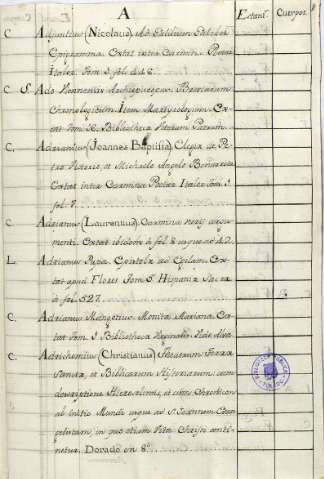 A
Estant. Cuerpos
C. Adjunctus (Nicolaus)
Epigramma. Extat inter Carmina Poetar.
Italor. Tom. 1. fol.
C. S. Ado Viennensis Archiepiscopus. Breviarium
Chronologicum. Item Martyrologium. Ex-
tant Tom. Bibliotheca Vetrum Patrum.
C. (Joannes Baptista) Elegia de Pe-
tro et Michaele Angelo
Extat inter Carmina Poetar. Italor. Tom. 1.
fol. 7.
C. Adrianus (Laurentius) Carmina varij argu-
menti. Extat ibidem à fol. 8 usque ad
L. Adrianus Papa Epistola ad Egilam. Ex-
tat apud Florez Tom. 5. Hispania Sacra
à fol. 527.
C. Adrianus Mangotius. Monita Mariana. Ex-
tat Tom. 1. Bibliotheca
C. Adrichomius (Christianus) Theatrum Terræ
Sanctæ, et Biblicarum Historiarum, cum
descriptione Hierusalemis, et cum Chronicon
ab initio Mundi usque ad S. Joannem
in quo etiam Vita Christi conti-
netur. Dorado en 8º